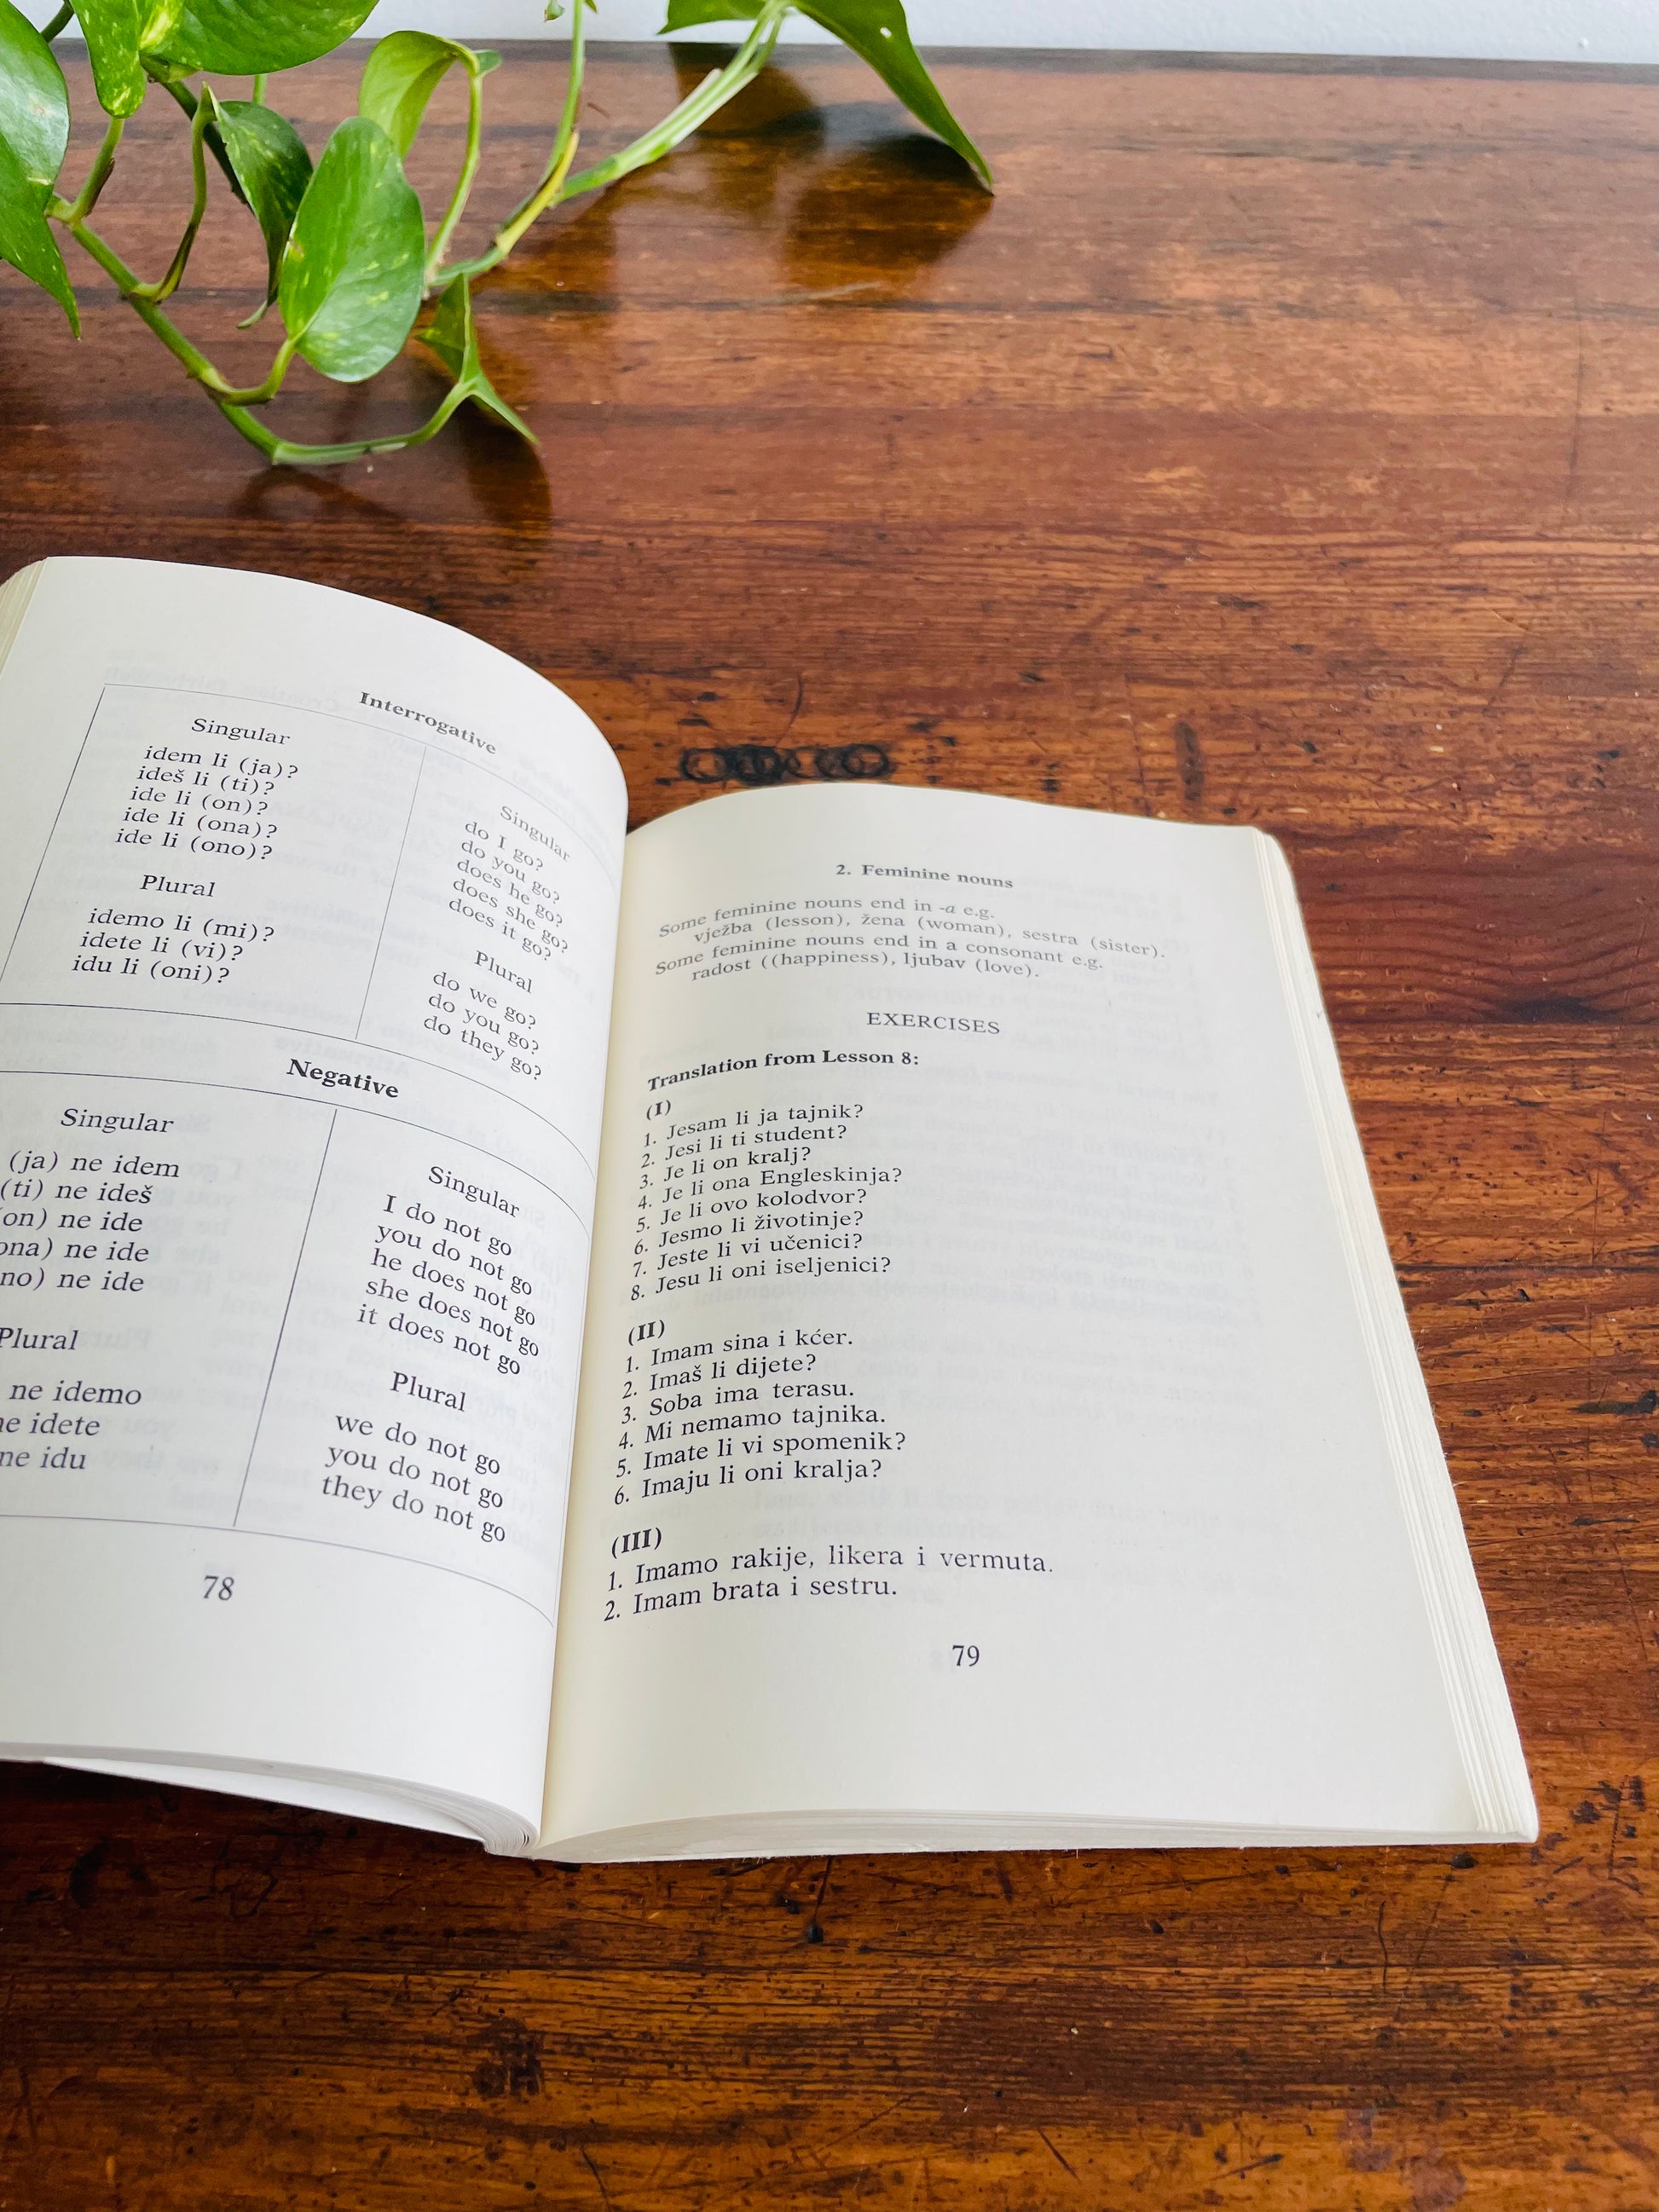 Interrogative
Singular
idem li (ja)?
ideš li (ti)?
ide li (on)?
ide li (ona)?
ide li (ono)?
Plural
idemo li (mi)?
idete li (vi)?
idu li (oni)?
Singular
do I go?
do you go?
does he go?
does she go?
does it go?
Plural
do we go?
do you go?
do they go?
Negative
Singular
(ja) ne idem
(ti) ne ideš
on) ne ide
ona) ne ide
no) ne ide
Plural
ne idemo
ne idete
ne idu
Singular
I do not go
you do not go
he does not go
she does not go
it does not go
Plural
we do not go
you do not go
they do not go
78
2. Feminine nouns
Some feminine nouns end in -a e.g.
vježba (lesson), žena (woman), sestra (sister).
Some feminine nouns end in a consonant e.g.
radost ((happiness), ljubav (love).
EXERCISES
Translation from Lesson 8:
(I)
1. Jesam li ja tajnik?
2. Jesi li ti student?
3. Je li on kralj?
4. Je li ona Engleskinja?
5. Je li ovo kolodvor?
6. Jesmo li životinje?
7. Jeste li vi učenici?
8. Jesu li oni iseljenici?
(II)
1. Imam sina i kćer.
2. Imaš li dijete?
3. Soba ima terasu.
4. Mi nemamo tajnika.
5. Imate li vi spomenik?
6. Imaju li oni kralja?
(III)
1. Imamo rakije, likera i vermuta.
2. Imam brata i sestru.
79